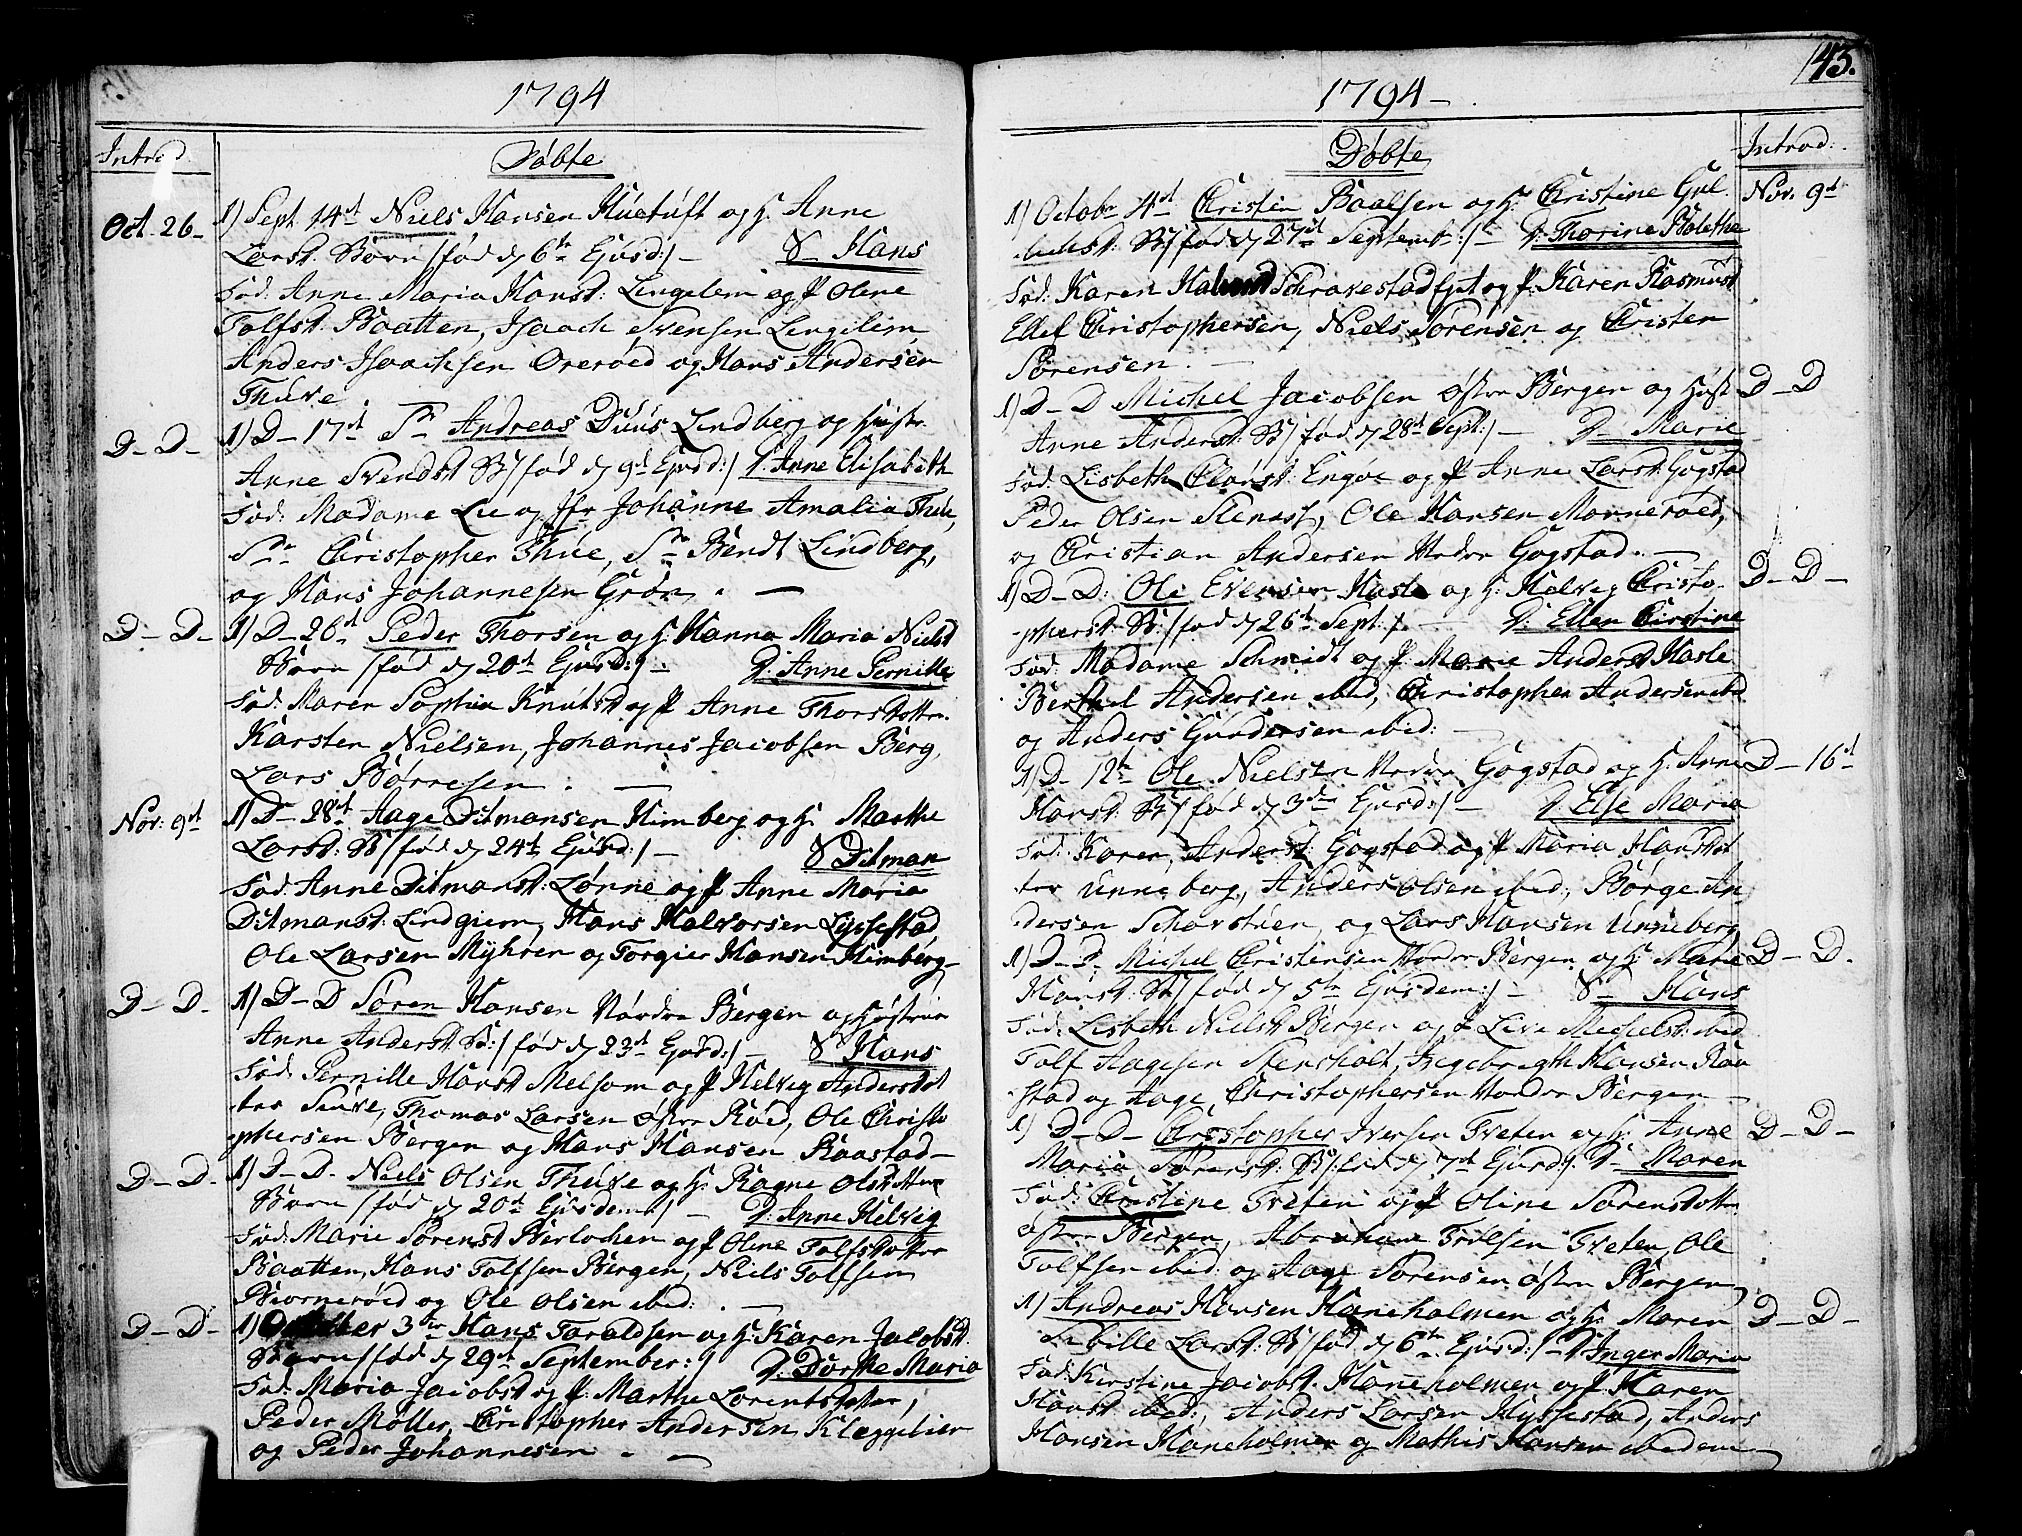 1794
Introd.
Døbte
Oct. 26 -
1) Sept. 14de Niels Hansen Huetuft og H. Anne
Larsd. Barn /: fød d 6te Ejusd: / - S- Hans
Fad: Anne Maria Hansd: Lingelem og P. Olene
Tolfsd. Baatten, Isaach Svensen Lingelem,
Anders Isaachsen Overøed og Hans Andersen
Thuve.
D - D -
1) D - 17de Sr Andreas Duus Lindberg og Hustr.
Anne Svendsd. B /: fød d 9de Ejusd: / D. Anne Elisabeth
Fad: Madame Lie og Jfr Johanne Amalia Thue,
Sr Christopher Thue, Sr Bendt Lindberg,
og Hans Johannesen Grøn. -
D - D -
1) D - 26de Peder Thorsen og H. Hanna Maria Nielsd
Barn /: fød d 20de Ejusd: / - D. Anne Pernille
Fad: Maren Sophia Knutsd og P Anne Thorsdottr.
Karsten Nielsen, Johannes Jacobsen Berg,
Lars Børresen. -
Nov: 9de
1) D - 28de Aage Ditmansen Himberg og H. Marthe
Larsd: B /: fød d 24de Ejusd: / - S Ditman
Fad: Anne Ditmansd: Lønne og P Anne Maria
Ditmansd. Lindgiem, Hans Halvorsen Lyssestad
Ole Larsen Myhren og Torgier Hansen Himberg -
D - D -
1) D - D Søren Hansen Nordre Bergen og Hustrue
Anne Andersd B: /: fød d 23de Ejusd: / - S Hans
Fad: Pernille Hansd Melsom og P Helvig Andersdot
ter Thuve, Thomas Larsen Østre Røed, Ole Christo
phersen Bergen og Hans Hansen Raastad -
D - D -
1) D - D. Niels Olsen Thuve og H. Ragne Olsdatter
Barn /: fød d 20de Ejusdem: / - D. Anne Helvig
Fad: Marie Sørensd og P Olene Tolfsdotter
Baatten, Hans Tolfsen Bergen, Niels Tolfsen
Biørnerøed og Ole Olsen ibid: . -
D - D -
1) October 3die Hans Taraldsen og H. Karen Jacobsd.
Barn /: fød d 29de September: / D. Dorthe Maria
Fad: Maria Jacobsd og P. Marthe Lorentsdatter,
Peder Møller, Christopher Andersen Kleggelier
og Peder Johannesen. -
43.
1794 -
Døbte
Introd:
Nov. 9de
1) Octobr 4de Christen Paalsen og H. Christine Gul
/: fød d 27de Septembr: / D. Thorine Bolethe
Fad: Karen og P. Karen Rasmusd
Ellef Christophersen, Niels Sørensen og Christen
Sørensen. -
D - D
1) D - D Michel Jacobsen Østre Bergen og Hust
Anne Andersd. B /: fød d 28de Sept: / - D - Marie
Fad: Lisbeth Engøe og P Anne Larsd. Gogstad
Peder Olsen Stenast, Ole Hansen Mønnerøed,
og Christian Andersen Nedre Gogstad. -
D - D -
1) D - D: Ole Evensen Hasle og H. Helvig Christo
phersd. B: /: fød d 26de Sept: / - D. Ellen Cirstine
Fad: Madame Schmidt og P. Marie Andersd Hasle
Berthel Andersen ibid, Christopher Andersen ibid
og Anders Gundersen ibid: -
D - 16de
1) D - 12te Ole Nielsen Nedre Gogstad og H. Anne
Hansd. B /: fød d 3die Ejusd: / - D. Else Maria
Fad: Karen Andersd: Gogstad og P Maria Hansdot
ter Unneberg, Anders Olsen ibid, Børge An
dersen og Lars Hansen Unneberg
D - D -
1) D - D - Michel Christensen Nordre Bergen og H Marie
Hansd: B /: fød d 5te Ejusdem: / - S - Hans
Fad: Lisbeth Nielsd Bergen og P Live Michelsd: ibid
Tolf Aagesen Stensholt, Ingebrigth Hansen Raa
stad og Aage Christophersen Nordre Bergen -
D - D -
1) D - D - Christopher Iversen Tveten og H. Anne
Maria Sørensd: B /: fød d 7de Ejusd: / D - Maren
Fad: Christine Tveten og P Oline Sørensdottr.
Østre Bergen, Abraham Tveten, Ole
Tolfsen ibid: og Aage Sørensen Østre Bergen
D - D -
1) Andreas Hansen Haneholmen og H. Maren
Sibille Larsd: B /: fød d 6te Ejusd: / - D Inger Maria
Fad: Kirstine Jacobsd. Haneholmen og P. Karen
Hansd ibid:, Anders Larsen Hyssestad, Anders
Hansen Haneholmen og Mathis Hansen ibidem